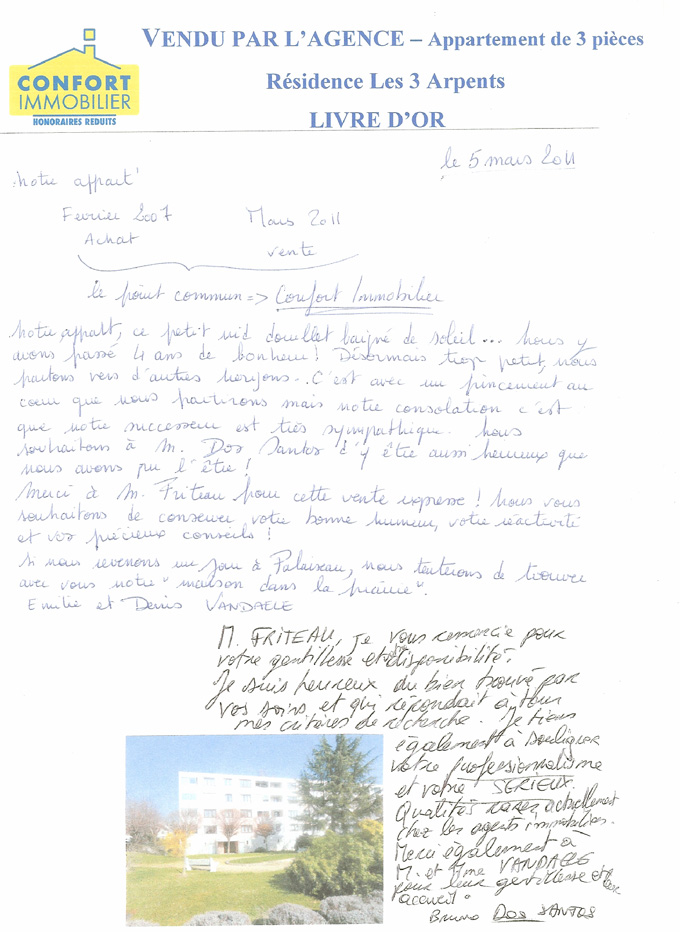 VENDU PAR L'AGENCE – Appartement de 3 pièces
CONFORT
IMMOBILIER
HONORAIRES REDUITS
Résidence Les 3 Arpents
LIVRE D'OR
le 5 mars 2011
Notre appart'
Février 2007 Mars 2011
Achat vente
le point commun => Confort Immobilier
Notre appart, ce petit nid douillet baigné de soleil... Nous y
avons passé 4 ans de bonheur! Désormais trop petit, nous
partons vers d'autres horizons... C'est avec un pincement au
coeur que nous partirons mais notre consolation c'est
que notre successeur est très sympathique. Nous
souhaitons à M. Dos Santos d'y être aussi heureux que
nous avons pu l'être!
Merci à M. Friteau pour cette vente expresse! Nous vous
souhaitons de conserver votre bonne humeur, votre réactivité
et vos précieux conseils!
Si nous revenons un jour à Palaiseau, nous tenterons de trouver
avec vous notre "maison dans la prairie".
Emilie et Denis VANDAELE
M. FRITEAU, je vous remercie pour
votre gentillesse et disponibilité.
Je suis heureux du bien trouvé par
vos soins et qui répondait à tous
mes critères de recherche. Je tiens
également à souligner
votre professionnalisme
et votre SERIEUX.
Qualités rares actuellement
chez les agents immobiliers.
Merci également à
M. et Mme VANDAELE
pour leur gentillesse et leur
accueil.
Bruno Dos SANTOS